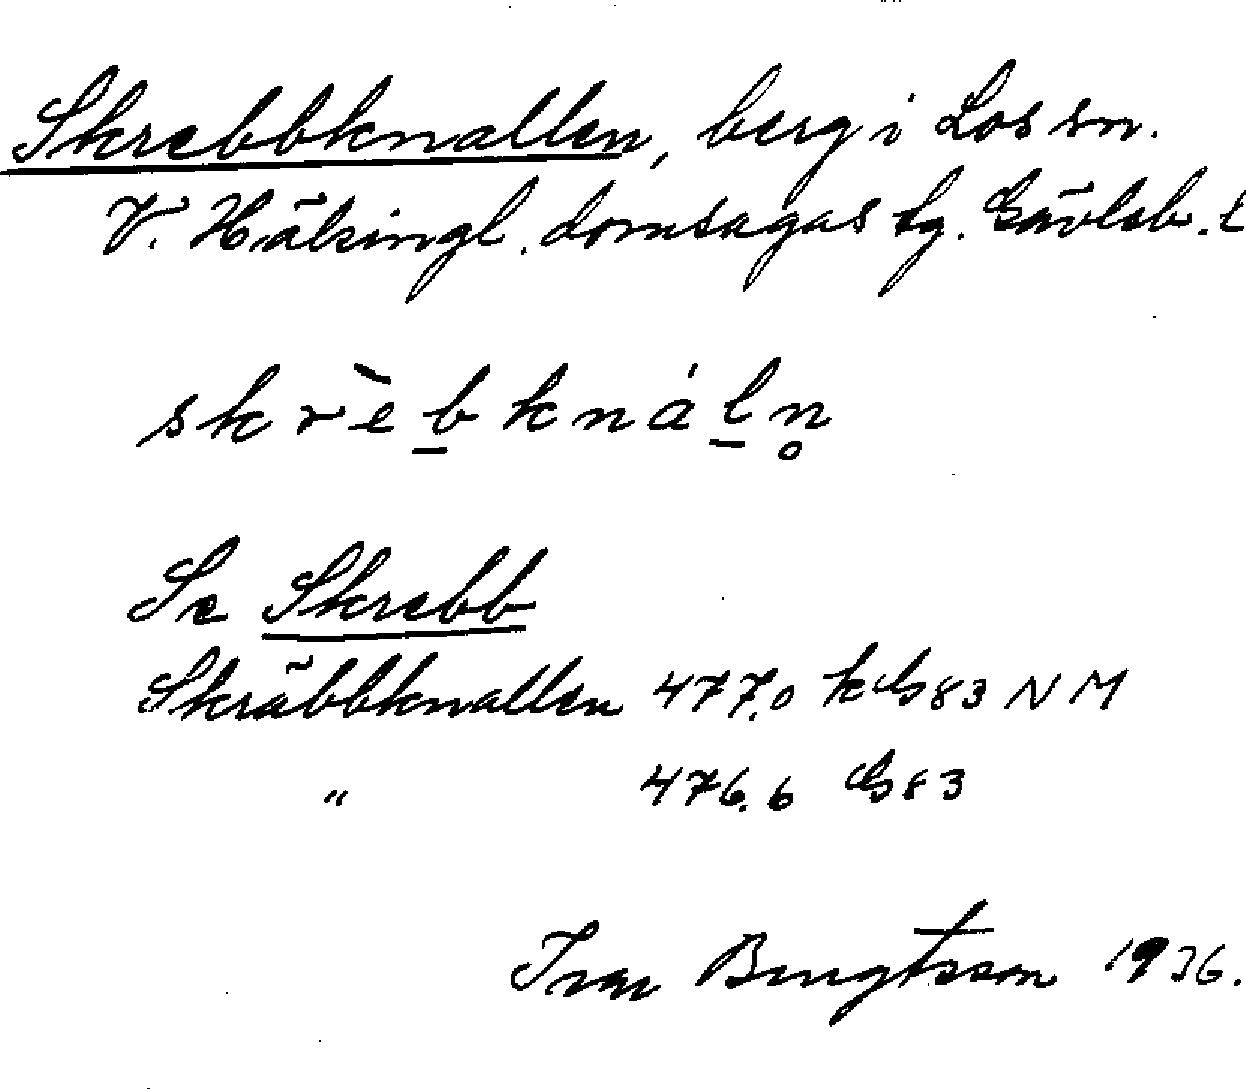 Skrebbknallen, berg i Los sn.
V. Hälsingl. domsagas tg. Gävleb. l
skrèb̲knál̲n̥
Se Skrebb
Skräbbknallen 477,0 kG83 NM
" 476.6 G83
Ivar Bengtsson 1936.